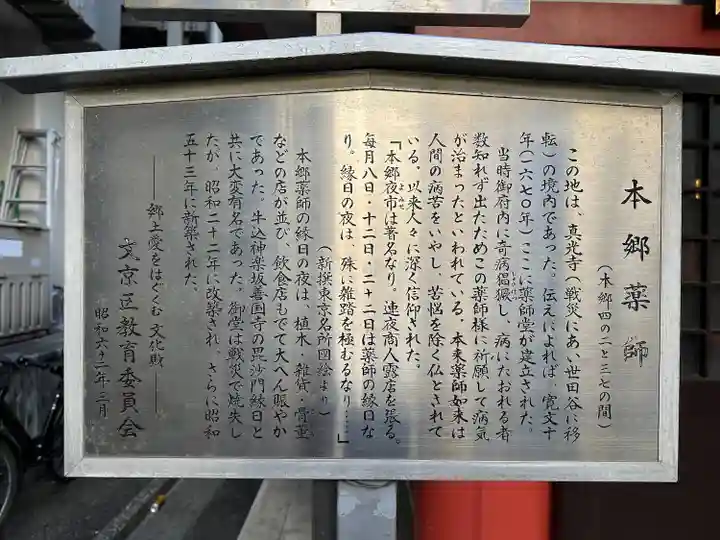 本郷薬師
(本郷四の二と三七の間)
この地は、真光寺(戦災にあい世田谷に移
転)の境内であった。伝えによれば、寛文十
年(一六七〇年)ここに薬師堂が建立された。
当時御府内に奇病猖獗し、病にたおれる者
数知れず出たためこの薬師様に祈願して病気
が治まったといわれている。本来薬師如来は
人間の病苦をいやし、苦悩を除く仏とされて
いる。以来人々に深く信仰された。
「本郷夜市は著名なり。連夜商人露店を張る。
毎月八日・十二日・二十二日は薬師の縁日な
り。縁日の夜は、殊に雑踏を極むるなり……」
(新撰東京名所図絵より)
本郷薬師の縁日の夜は、植木・雑貨・骨董
などの店が並び、飲食店もでて大へん賑やか
であった。牛込神楽坂善国寺の毘沙門縁日と
共に大変有名であった。御堂は戦災で焼失し
たが、昭和二十二年に改築され、さらに昭和
五十三年に新築された。
―郷土愛をはぐくむ文化財―
文京区教育委員会
昭和六十一年三月